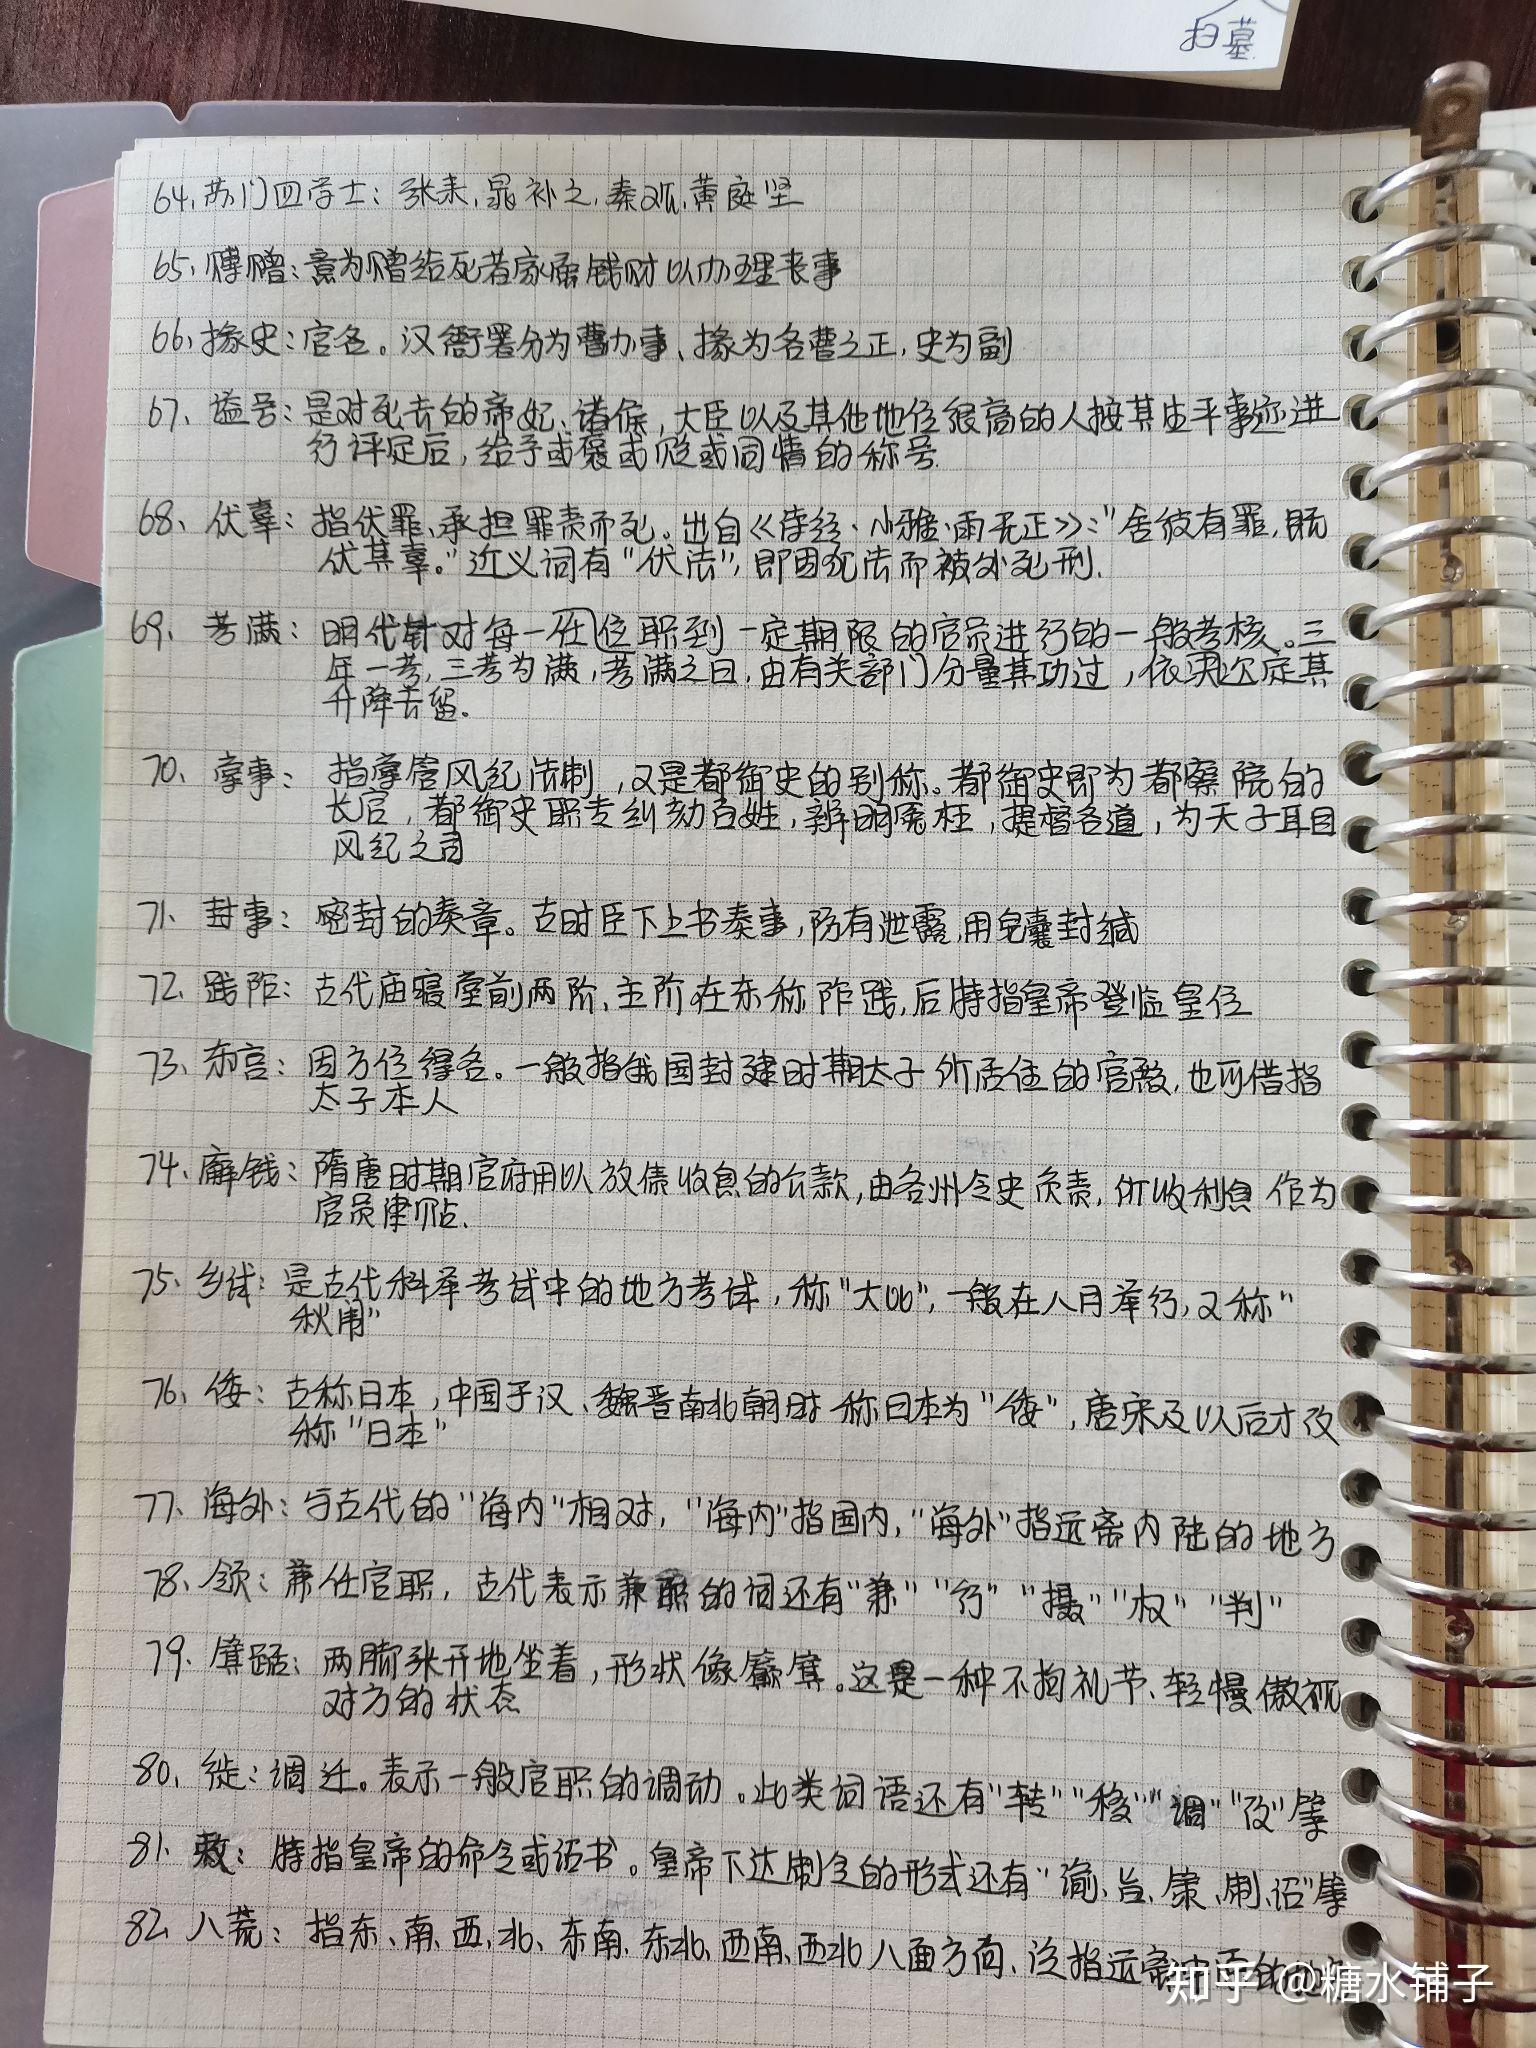 扫墓
64、苏门四学士：张耒、晁补之、秦观、黄庭坚
65、赙赠：意为赠给死者家属钱财以办理丧事
66、掾史：官名。汉衙署分为曹办事、掾为各曹之正，史为副
67、谥号：是对死去的帝妃、诸侯，大臣以及其他地位很高的人按其生平事迹进
行评定后，给予或褒或贬或同情的称号
68、伏辜：指伏罪、承担罪责而死。出自《诗经·小雅·雨无正》：“舍彼有罪，既
伏其辜。”近义词有“伏法”，即因犯法而被处死刑.
69、考满：明代针对每一任位职到一定期限的官员进行的一般考核。三
年一考，三考为满，考满之日，由有关部门分量其功过，依実次定其
升降去留.
70、宪事：指掌管风纪法制，又是都御史的别称。都御史即为都察院的
长官，都御史职专纠劾百姓，辨明冤枉，提督各道，为天子耳目
风纪之司
71、封事：密封的奏章。古时臣下上书奏事，防有泄露，用皂囊封缄
72、践阼：古代庙寝堂前两阶，主阶在东称阼践，后特指皇帝登临皇位
73、东宫：因方位得名。一般指我国封建时期太子所居住的宫殿，也可借指
太子本人
74、廨钱：隋唐时期官府用以放债收息的公款，由各州令史负责，所收利息作为
官员津贴.
75、乡试：是古代科举考试中的地方考试，称“大比”，一般在八月举行，又称“
秋闱”
76、倭：古称日本，中国于汉、魏晋南北朝时称日本为“倭”，唐宋及以后才改
称“日本”
77、海外：与古代的“海内”相对，“海内”指国内，“海外”指远离内陆的地方
78、领：兼任官职，古代表示兼职的词还有“兼”“行”“摄”“权”“判”
79、箕踞：两脚张开地坐着，形状像簸箕。这是一种不拘礼节、轻慢傲视
对方的状态
80、徙：调迁。表示一般官职的调动。此类词语还有“转”“移”“调”“改”等
81、敕：特指皇帝的命令或诏书。皇帝下达制令的形式还有“谕、旨、策、制、诏”等
82、八荒：指东、南、西、北、东南、东北、西南、西北八面方向、泛指远离中原的地方
知乎 @糖水铺子